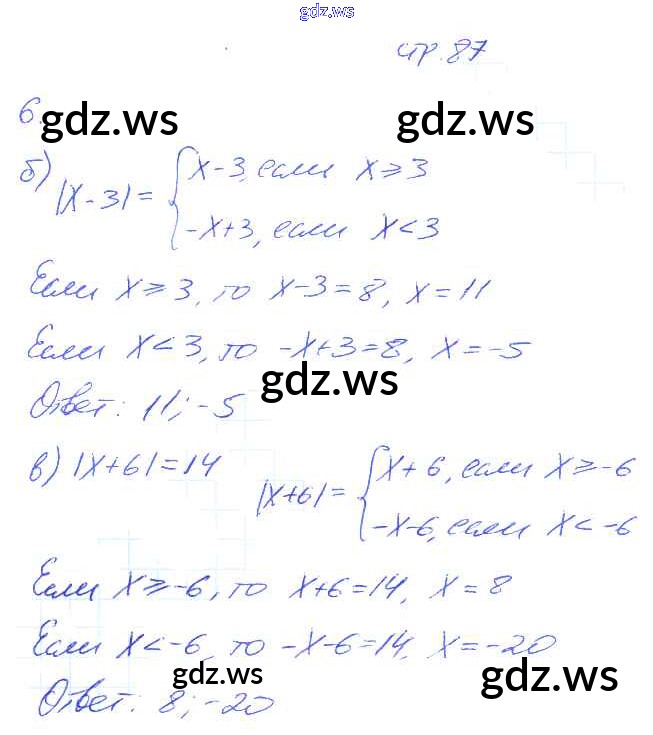 gdz.ws
стр.87
6.
gdz.ws gdz.ws
б) |x-3|= { x-3, если x⩾3
-x+3, если x<3
Если x⩾3, то x-3=8, x=11
Если x<3, то -x+3=8, x=-5
gdz.ws
Ответ: 11; -5
в) |x+6|=14 |x+6|= { x+6, если x⩾-6
-x-6, если x<-6
Если x⩾-6, то x+6=14, x=8
Если x<-6, то -x-6=14, x=-20
gdz.ws gdz.ws
Ответ: 8; -20